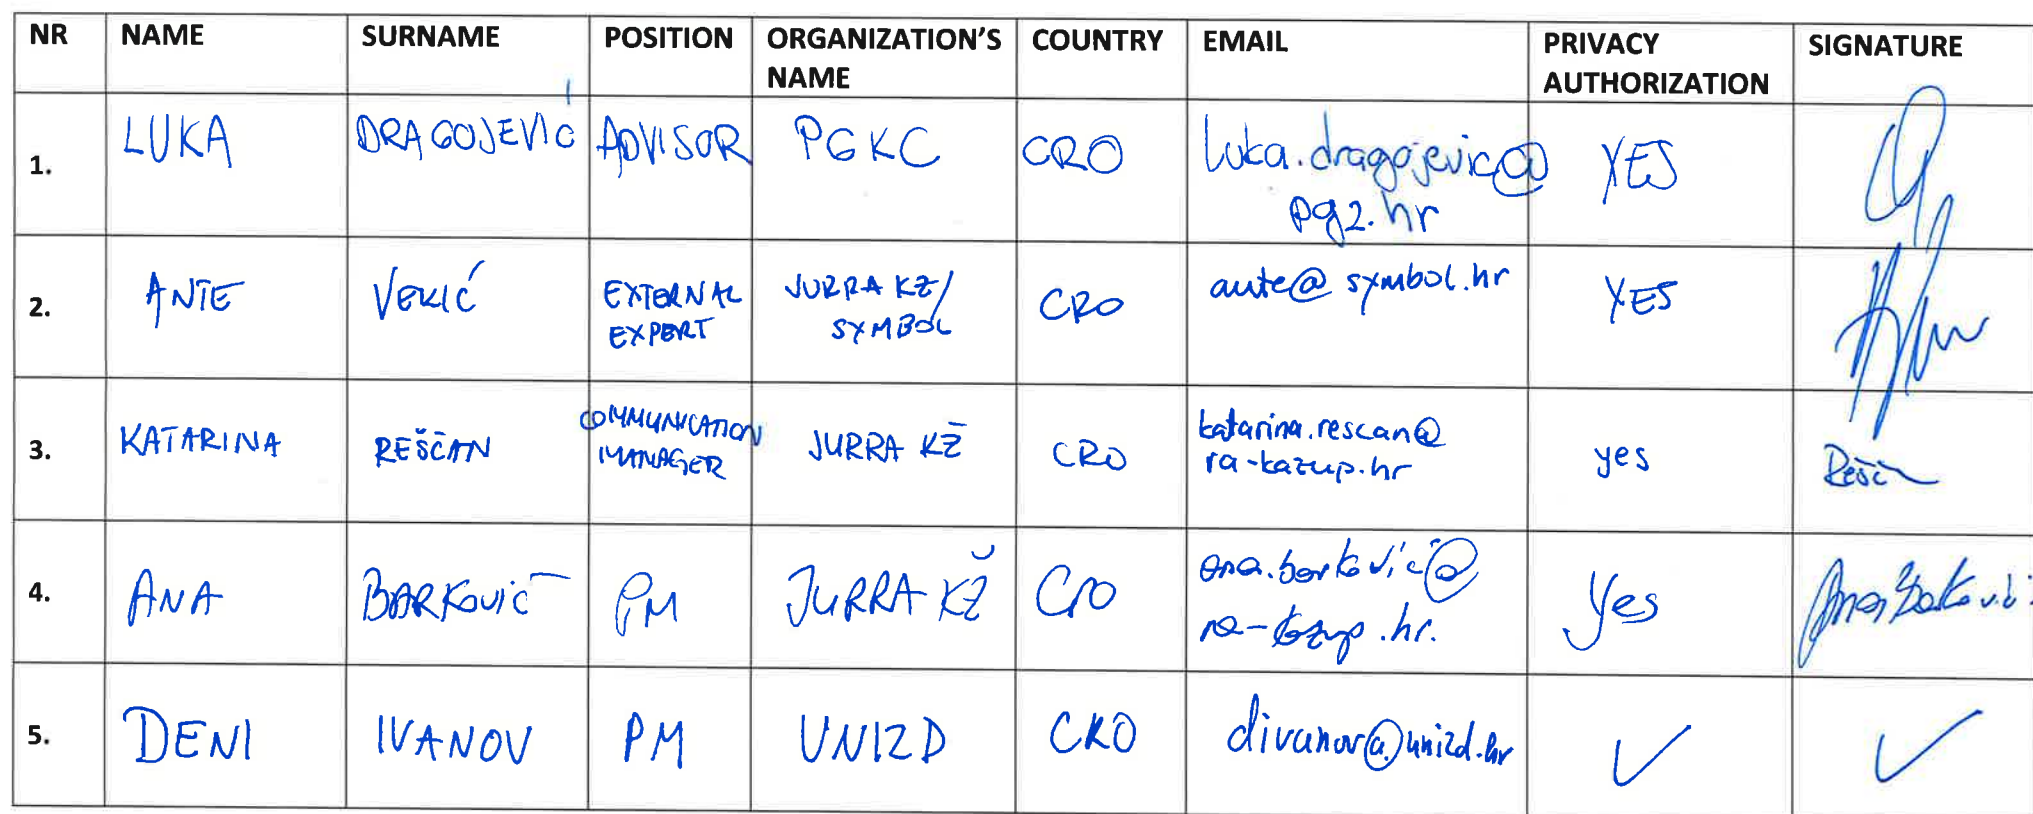 NR NAME SURNAME POSITION ORGANIZATION'S NAME COUNTRY EMAIL PRIVACY AUTHORIZATION SIGNATURE
1. LUKA DRAGOJEVIĆ ADVISOR PGKC CRO luka.dragojevic@
pg2.hr YES
2. ANTE VEKIĆ EXTERNAL EXPERT JURRA KŽ/ SYMBOL CRO ante@symbol.hr YES
3. KATARINA REŠČAN COMMUNICATION MANAGER JURRA KŽ CRO katarina.rescan@
ra-kazup.hr yes Rešč
4. ANA BARKOVIĆ PM JURRA KŽ CRO ana.barkovic@
ra-kazup.hr. Yes Ana Barković
5. DENI IVANOV PM UNIZD CRO divanov@unizd.hr ✓ ✓